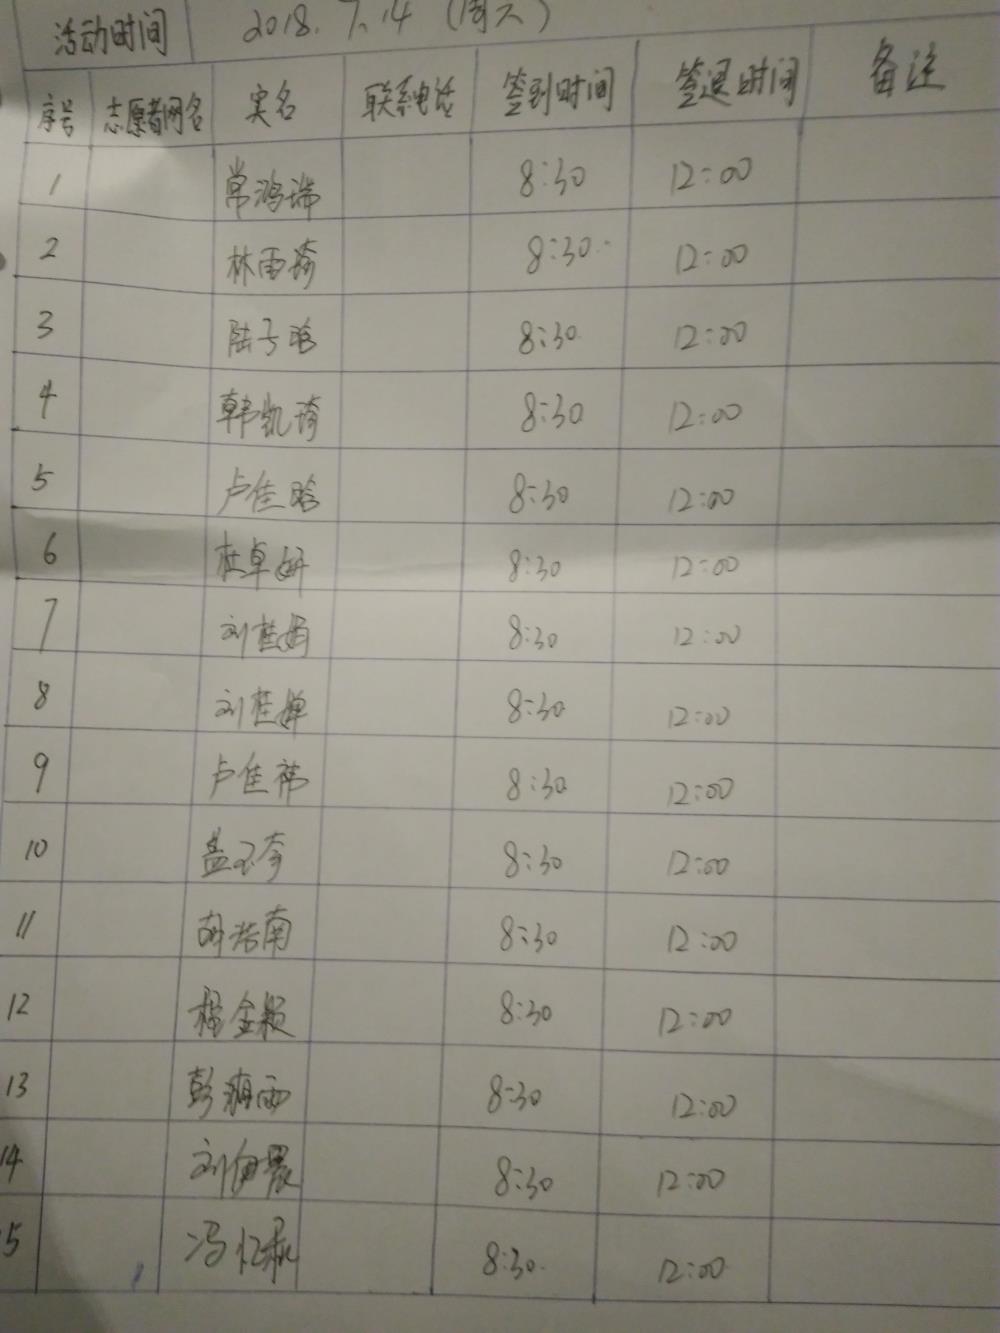 活动时间 2018.7.14 (周六)
序号 志愿者网名 实名 联系电话 签到时间 签退时间 备注
1 常鸿瑞 8:30 12:00
2 林雨琦 8:30 12:00
3 陆子晗 8:30 12:00
4 韩凯琦 8:30 12:00
5 卢佳晗 8:30 12:00
6 杜卓妍 8:30 12:00
7 刘桂娟 8:30 12:00
8 刘桂婵 8:30 12:00
9 卢佳祎 8:30 12:00
10 8:30 12:00
11 胡浩南 8:30 12:00
12 程金颖 8:30 12:00
13 彭 雨 8:30 12:00
14 刘伊晨 8:30 12:00
15 冯 8:30 12:00